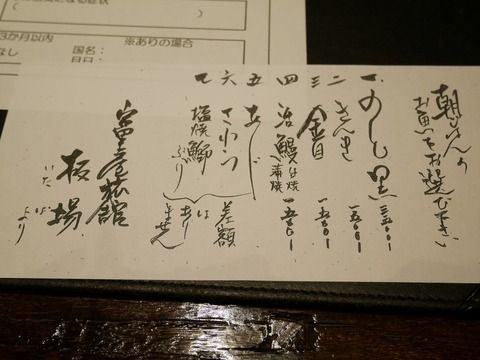 になる症状
(　　　　　)
3か月以内
※ありの場合
なし
国名：
月日：
朝ごはんの
お魚をお選び下さい
一、のど黒 三、五〇〇ー
二 きんき 一、五〇〇ー
三 金目 一、五〇〇ー
四 活鰻 白焼 蒲焼 一、五〇〇ー
五 あじ
六 さわら
七 塩焼鰤 ぶり
差額
は
ありません
富士屋旅館
板場
いた ば より